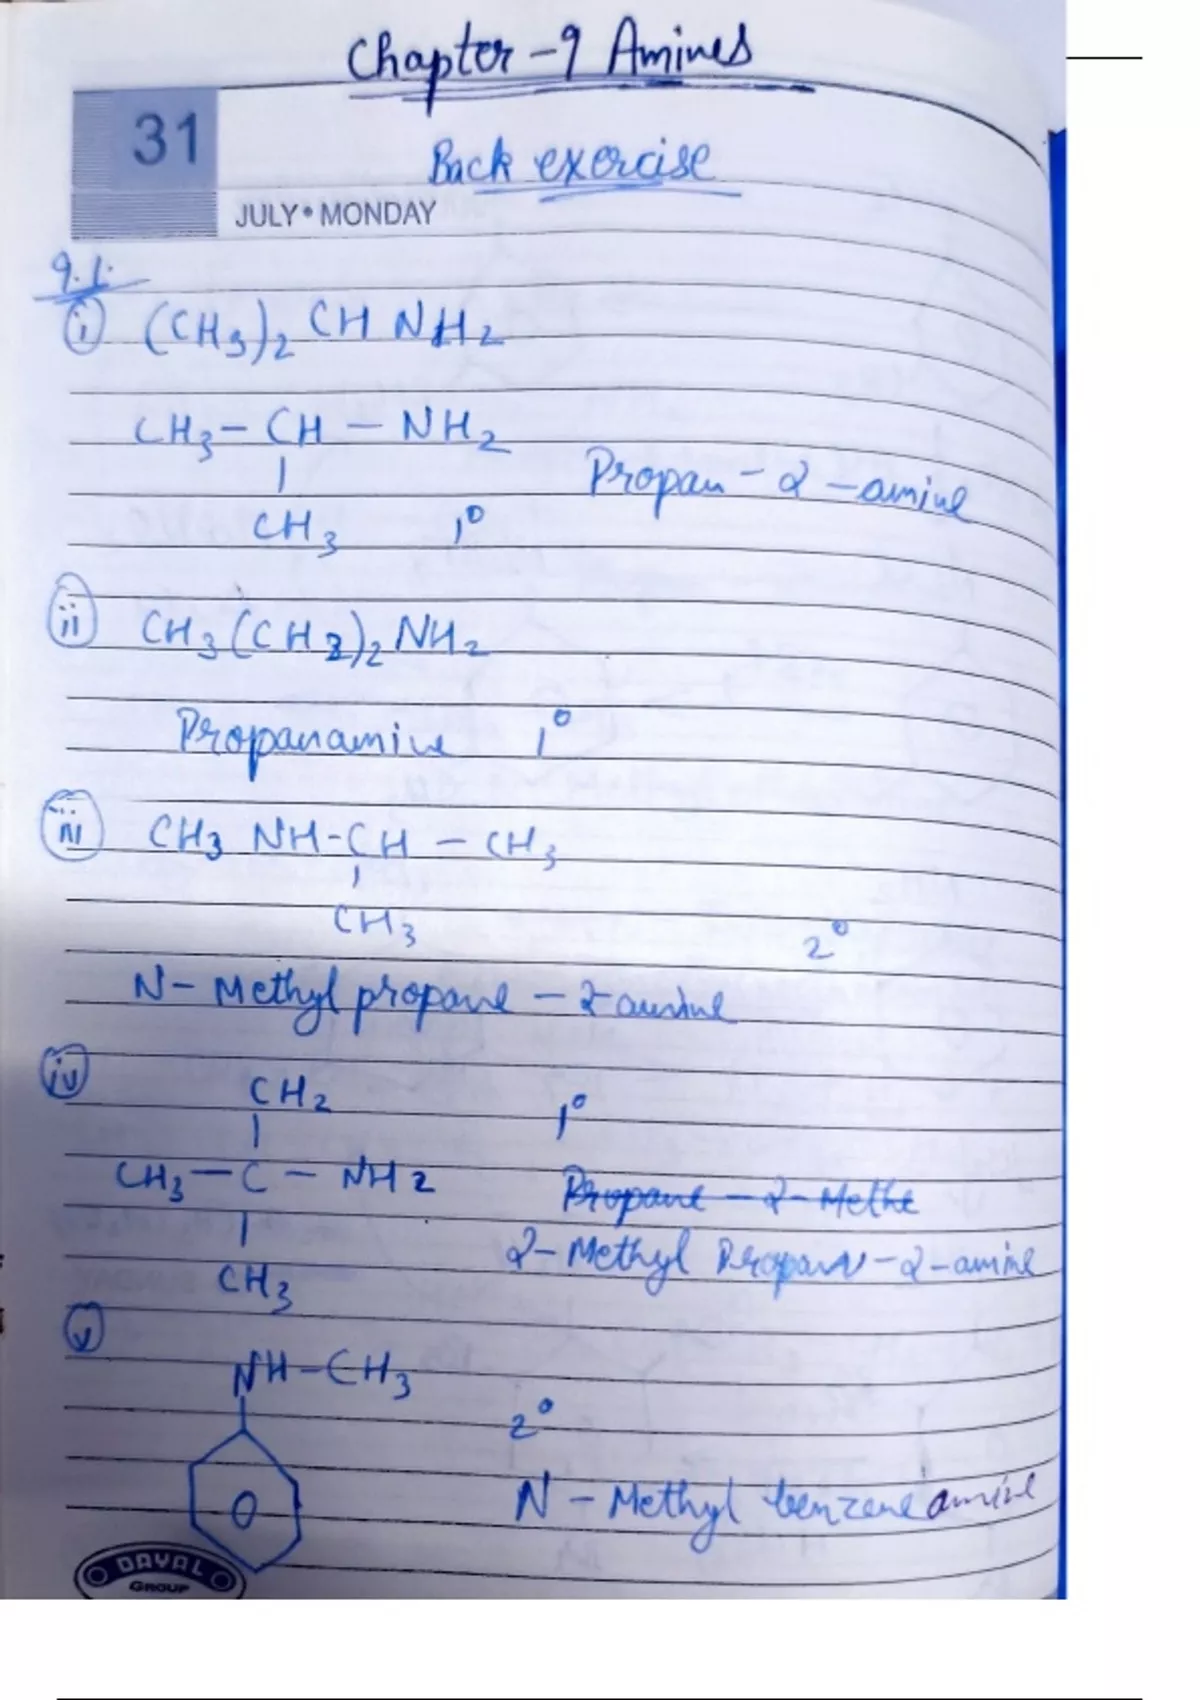 Chapter - 9 Amines
31
Back exercise
JULY • MONDAY
9.1.
i) (CH3)2 CH NH2
CH3 - CH - NH2
|
Propan - 2 - amine
CH3 1°
ii) CH3(CH2)2 NH2
Propanamine 1°
iii) CH3 NH - CH - CH3
|
CH3
2°
N - Methyl propane - 2 amine
iv) CH2 1°
|
CH3 - C - NH2 Propane - 2 - Methe
|
2 - Methyl Propan - 2 - amine
CH3
v)
NH - CH3
2°
N - Methyl benzene amine
DAYAL
GROUP